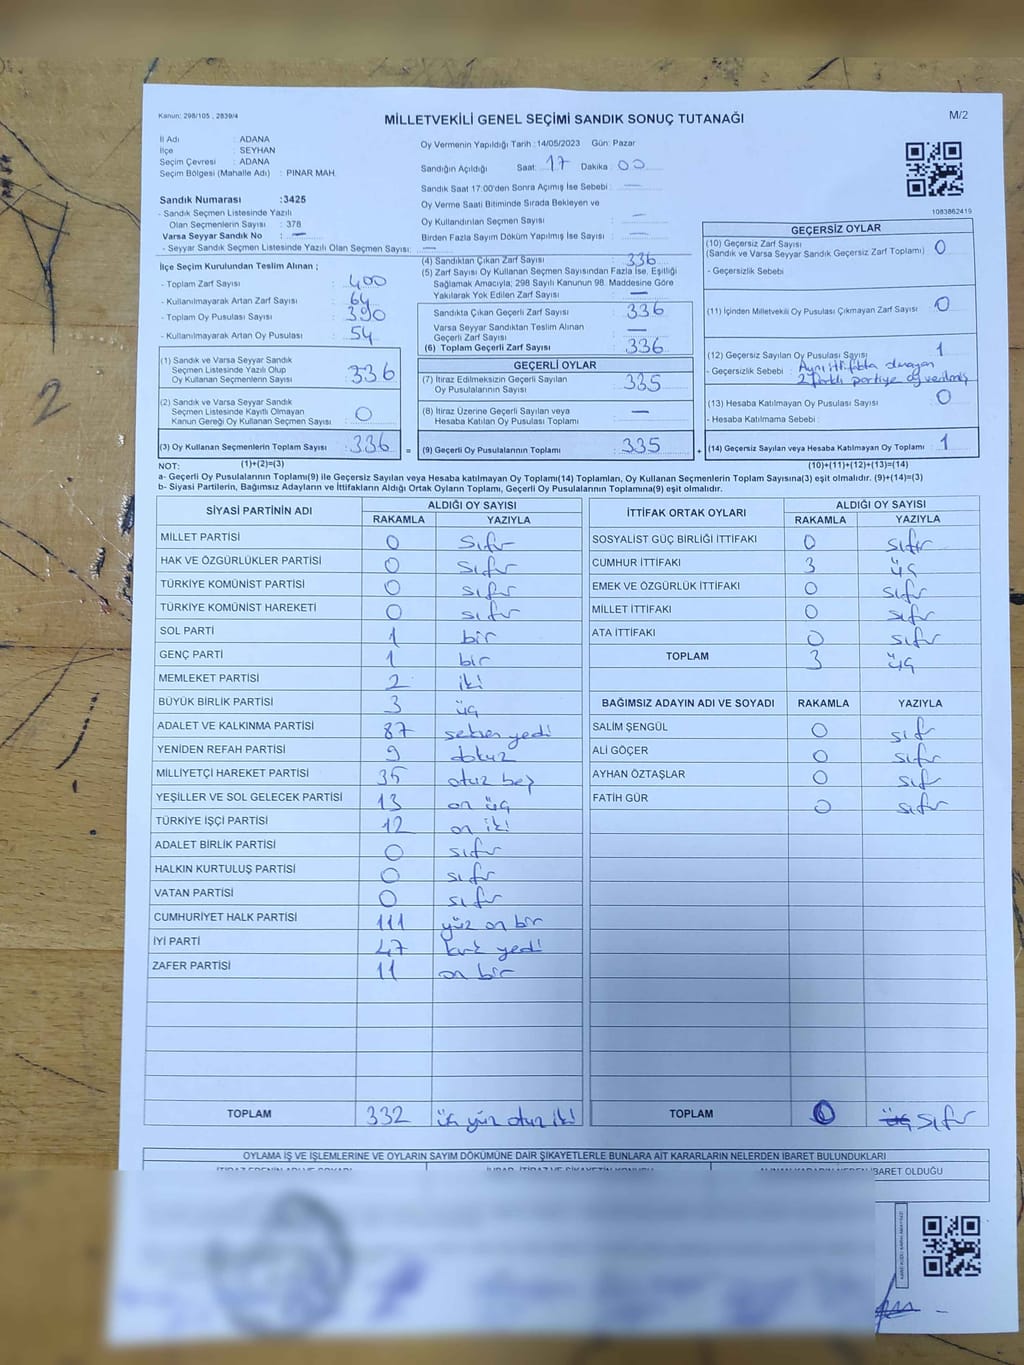 Kanun: 298/105 , 2839/4
MİLLETVEKİLİ GENEL SEÇİMİ SANDIK SONUÇ TUTANAĞI
M/2
İl Adı : ADANA
İlçe : SEYHAN
Seçim Çevresi : ADANA
Seçim Bölgesi (Mahalle Adı) : PINAR MAH.
Sandık Numarası :3425
- Sandık Seçmen Listesinde Yazılı
Olan Seçmenlerin Sayısı : 378
Varsa Seyyar Sandık No : —
- Seyyar Sandık Seçmen Listesinde Yazılı Olan Seçmen Sayısı: —
Oy Vermenin Yapıldığı Tarih :14/05/2023 Gün: Pazar
Sandığın Açıldığı Saat: 17 Dakika: 00
Sandık Saat 17:00'den Sonra Açımış İse Sebebi : —
Oy Verme Saati Bitiminde Sırada Bekleyen ve
Oy Kullandırılan Seçmen Sayısı : —
Birden Fazla Sayım Döküm Yapılmış İse Sayısı : —
1083862419
İlçe Seçim Kurulundan Teslim Alınan ;
- Toplam Zarf Sayısı : 400
- Kullanılmayarak Artan Zarf Sayısı : 64
- Toplam Oy Pusulası Sayısı : 390
- Kullanılmayarak Artan Oy Pusulası : 54
(1) Sandık ve Varsa Seyyar Sandık
Seçmen Listesinde Yazılı Olup
Oy Kullanan Seçmenlerin Sayısı : 336
(2) Sandık ve Varsa Seyyar Sandık
Seçmen Listesinde Kayıtlı Olmayan
Kanun Gereği Oy Kullanan Seçmen Sayısı : 0
(3) Oy Kullanan Seçmenlerin Toplam Sayısı : 336
(4) Sandıktan Çıkan Zarf Sayısı : 336
(5) Zarf Sayısı Oy Kullanan Seçmen Sayısından Fazla İse, Eşitliği
Sağlamak Amacıyla; 298 Sayılı Kanunun 98. Maddesine Göre
Yakılarak Yok Edilen Zarf Sayısı : —
Sandıkta Çıkan Geçerli Zarf Sayısı : 336
Varsa Seyyar Sandıktan Teslim Alınan
Geçerli Zarf Sayısı : —
(6) Toplam Geçerli Zarf Sayısı : 336
GEÇERLİ OYLAR
(7) İtiraz Edilmeksizin Geçerli Sayılan
Oy Pusulalarının Sayısı : 335
(8) İtiraz Üzerine Geçerli Sayılan veya
Hesaba Katılan Oy Pusulaları Toplamı : —
= (9) Geçerli Oy Pusulalarının Toplamı : 335
GEÇERSİZ OYLAR
(10) Geçersiz Zarf Sayısı
(Sandık ve Varsa Seyyar Sandık Geçersiz Zarf Toplamı) : 0
- Geçersizlik Sebebi :
(11) İçinden Milletvekili Oy Pusulası Çıkmayan Zarf Sayısı : 0
(12) Geçersiz Sayılan Oy Pusulası Sayısı : 1
- Geçersizlik Sebebi : Aynı ittifakta olmayan
2 farklı partiye oy verilmiş
(13) Hesaba Katılmayan Oy Pusulası Sayısı : 0
- Hesaba Katılmama Sebebi :
+ (14) Geçersiz Sayılan veya Hesaba Katılmayan Oy Toplamı : 1
NOT: (1)+(2)=(3)
(10)+(11)+(12)+(13)=(14)
a- Geçerli Oy Pusulalarının Toplamı(9) ile Geçersiz Sayılan veya Hesaba katılmayan Oy Toplamı(14) Toplamları, Oy Kullanan Seçmenlerin Toplam Sayısına(3) eşit olmalıdır. (9)+(14)=(3)
b- Siyasi Partilerin, Bağımsız Adayların ve İttifakların Aldığı Ortak Oyların Toplamı, Geçerli Oy Pusulalarının Toplamına(9) eşit olmalıdır.
SİYASİ PARTİNİN ADI ALDIĞI OY SAYISI
RAKAMLA YAZIYLA
MİLLET PARTİSİ 0 sıfır
HAK VE ÖZGÜRLÜKLER PARTİSİ 0 sıfır
TÜRKİYE KOMÜNİST PARTİSİ 0 sıfır
TÜRKİYE KOMÜNİST HAREKETİ 0 sıfır
SOL PARTİ 1 bir
GENÇ PARTİ 1 bir
MEMLEKET PARTİSİ 2 iki
BÜYÜK BİRLİK PARTİSİ 3 üç
ADALET VE KALKINMA PARTİSİ 87 seksen yedi
YENİDEN REFAH PARTİSİ 9 dokuz
MİLLİYETÇİ HAREKET PARTİSİ 35 otuz beş
YEŞİLLER VE SOL GELECEK PARTİSİ 13 on üç
TÜRKİYE İŞÇİ PARTİSİ 12 on iki
ADALET BİRLİK PARTİSİ 0 sıfır
HALKIN KURTULUŞ PARTİSİ 0 sıfır
VATAN PARTİSİ 0 sıfır
CUMHURİYET HALK PARTİSİ 111 yüz on bir
İYİ PARTİ 47 kırk yedi
ZAFER PARTİSİ 11 on bir
TOPLAM 332 üç yüz otuz iki
İTTİFAK ORTAK OYLARI ALDIĞI OY SAYISI
RAKAMLA YAZIYLA
SOSYALİST GÜÇ BİRLİĞİ İTTİFAKI 0 sıfır
CUMHUR İTTİFAKI 3 üç
EMEK VE ÖZGÜRLÜK İTTİFAKI 0 sıfır
MİLLET İTTİFAKI 0 sıfır
ATA İTTİFAKI 0 sıfır
TOPLAM 3 üç
BAĞIMSIZ ADAYIN ADI VE SOYADI RAKAMLA YAZIYLA
SALİM ŞENGÜL 0 sıfır
ALİ GÖÇER 0 sıfır
AYHAN ÖZTAŞLAR 0 sıfır
FATİH GÜR 0 sıfır
TOPLAM 0 üç sıfır
OYLAMA İŞ VE İŞLEMLERİNE VE OYLARIN SAYIM DÖKÜMÜNE DAİR ŞİKAYETLERLE BUNLARA AİT KARARLARIN NELERDEN İBARET BULUNDUKLARI
İBARET OLDUĞU
2